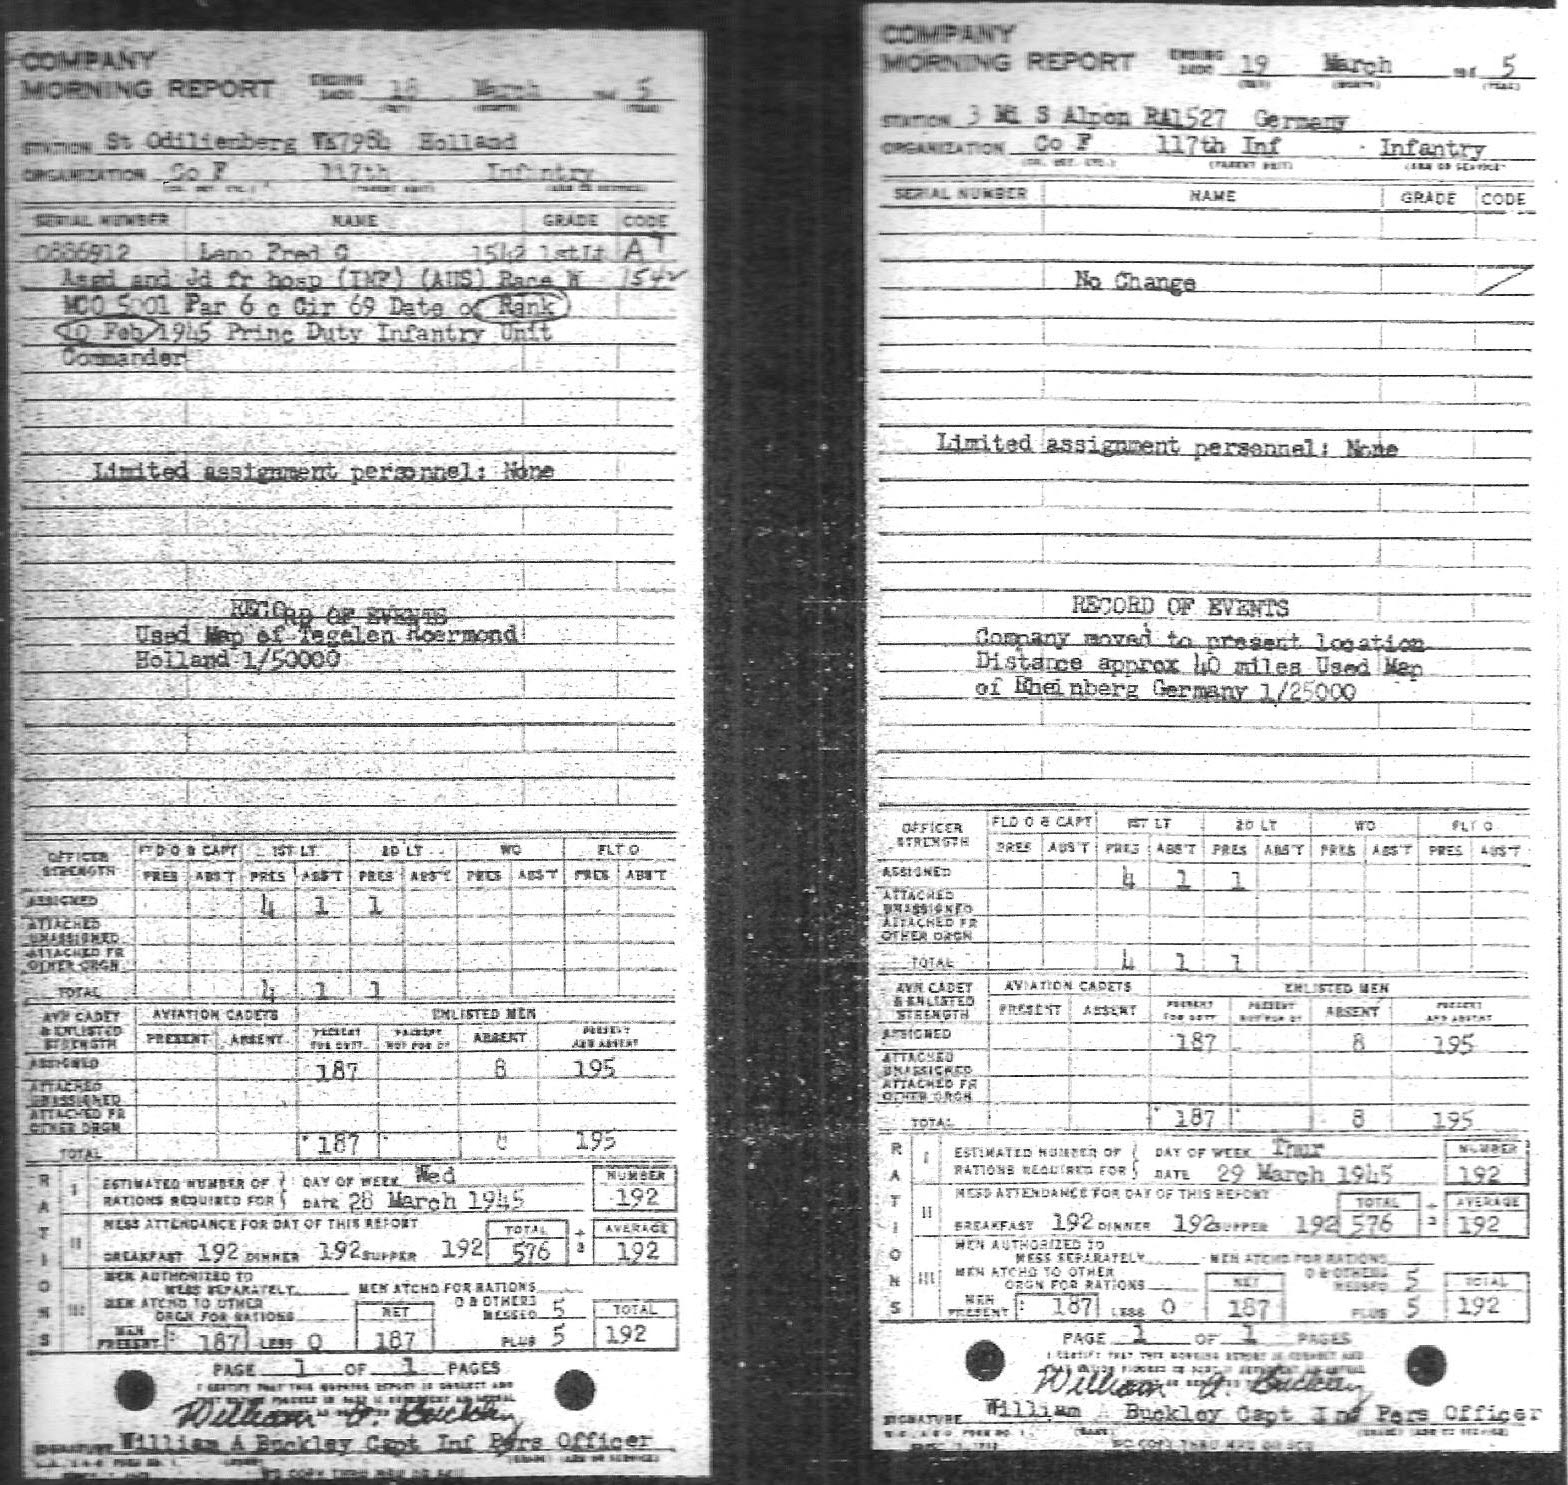 COMPANY
MORNING REPORT ENDING 18 March 5
STATION St Odilienberg VK7984 Holland
ORGANIZATION Co F 117th Infantry
SERIAL NUMBER NAME GRADE CODE
Fred G 1542 1stLt A
Asgd and Jd fr hosp (INF) (AUS) Race W 1542
MCO 5001 Par 6 c Cir 69 Date of Rank
10 Feb 1945 Princ Duty Infantry Unit
Commander
Limited assignment personnel: None
RECORD OF EVENTS
Used Map of Tegelen Roermond
Holland 1/50000
OFFICER STRENGTH FLD O & CAPT 1ST LT 2D LT WO FLT O
PRES ABS'T PRES ABS'T PRES ABS'T PRES ABS'T PRES ABS'T
ASSIGNED 4 1 1
ATTACHED UNASSIGNED
ATTACHED FR OTHER ORGN
TOTAL 4 1 1
AVN CADET & ENLISTED STRENGTH AVIATION CADETS ENLISTED MEN
PRESENT ABSENT PRESENT FOR DUTY PRESENT NOT FOR DY ABSENT PRESENT AND ABSENT
ASSIGNED 187 8 195
ATTACHED UNASSIGNED
ATTACHED FR OTHER ORGN
TOTAL 187 8 195
RATIONS
I ESTIMATED NUMBER OF RATIONS REQUIRED FOR DAY OF WEEK Wed NUMBER
DATE 28 March 1945 192
II MESS ATTENDANCE FOR DAY OF THIS REPORT TOTAL ÷ 3 AVERAGE
BREAKFAST 192 DINNER 192 SUPPER 192 576 192
III MEN AUTHORIZED TO MESS SEPARATELY MEN ATCHD FOR RATIONS
MEN ATCHD TO OTHER ORGN FOR RATIONS NET O & OTHERS MESSED 5 TOTAL
MEN PRESENT 187 LESS 0 187 PLUS 5 192
PAGE 1 OF 1 PAGES
I CERTIFY THAT THIS MORNING REPORT IS CORRECT AND
William A. Buckley
SIGNATURE William A Buckley Capt Inf Pers Officer
COMPANY
MORNING REPORT ENDING 19 March 5
STATION 3 Mi S Alpon RA1527 Germany
ORGANIZATION Co F 117th Inf Infantry
SERIAL NUMBER NAME GRADE CODE
No Change
Limited assignment personnel: None
RECORD OF EVENTS
Company moved to present location
Distance approx 40 miles Used Map
of Rheinberg Germany 1/25000
OFFICER STRENGTH FLD O & CAPT 1ST LT 2D LT WO FLT O
PRES ABS'T PRES ABS'T PRES ABS'T PRES ABS'T PRES ABS'T
ASSIGNED 4 1 1
ATTACHED UNASSIGNED
ATTACHED FR OTHER ORGN
TOTAL 4 1 1
AVN CADET & ENLISTED STRENGTH AVIATION CADETS ENLISTED MEN
PRESENT ABSENT PRESENT FOR DUTY PRESENT NOT FOR DY ABSENT PRESENT AND ABSENT
ASSIGNED 187 8 195
ATTACHED UNASSIGNED
ATTACHED FR OTHER ORGN
TOTAL 187 8 195
RATIONS
I ESTIMATED NUMBER OF RATIONS REQUIRED FOR DAY OF WEEK Thur NUMBER
DATE 29 March 1945 192
II MESS ATTENDANCE FOR DAY OF THIS REPORT TOTAL ÷ 3 AVERAGE
BREAKFAST 192 DINNER 192 SUPPER 192 576 192
III MEN AUTHORIZED TO MESS SEPARATELY MEN ATCHD FOR RATIONS
MEN ATCHD TO OTHER ORGN FOR RATIONS NET O & OTHERS MESSED 5 TOTAL
MEN PRESENT 187 LESS 0 187 PLUS 5 192
PAGE 1 OF 1 PAGES
I CERTIFY THAT THIS MORNING REPORT IS CORRECT AND
William A. Buckley
SIGNATURE William A Buckley Capt Inf Pers Officer